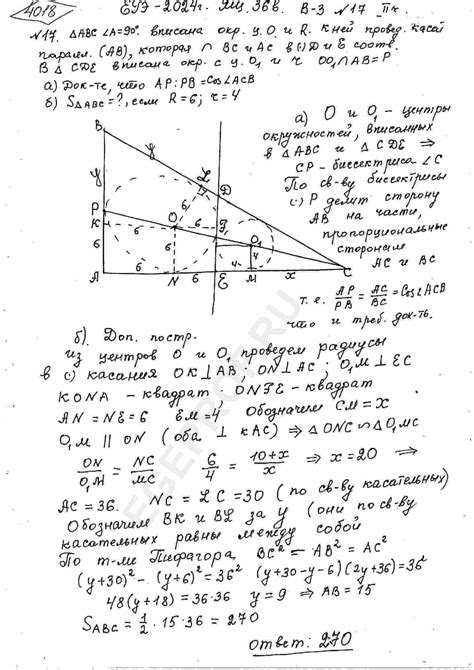 4018
ЕГЭ-2024г. Ящ. 36в. В-3 N17 IIч.
N17. △ABC ∠A=90° вписана окр. ц. O и R. К ней провед. касат
паралл. (AB), которая ∩ BC и AC в (·) D и E соотв.
В △ CDE вписана окр. с ц. O₁ и r OO₁∩AB=P
а) Док-те, что AP:PB=CosLACB
б) S△ABC=?, если R=6; r=4
а) O и O₁ - центры
окружностей, вписанных
в △ABC и △CDE ⇒
CP - биссектриса ∠C
По св-ву биссектрисы
(·) P делит сторону
AB на части,
пропорциональные
сторонам
AC и BC
т.е. AP/PB = AC/BC = CosLACB
что и треб. док-ть.
B
y
y
L
D
P
K
6
O
6
F₁
6
6
6
O₁
4
4
A
6
N
6
E
M
x
C
б) Доп. постр.
из центров O и O₁ проведем радиусы
в (·) касания OK⊥AB; ON⊥AC; O₁M⊥EC
KONA - квадрат ONFE - квадрат
AN=NE=6 EM=4 Обозначим CM=x
O₁M || ON (оба ⊥ к AC) ⇒ △ONC ∽ △O₁MC
ON/O₁M = NC/MC 6/4 = 10+x/x ⇒ x=20 ⇒
AC=36. NC=LC=30 (по св-ву касательных)
Обозначим BK и BL за y (они по св-ву
касательных равны между собой
По т-ми Пифагора BC² = AB² = AC²
(y+30)² - (y+6)² = 36² (y+30-y-6)(2y+36)=36²
48(y+18)=36·36 y=9 ⇒ AB=15
SABC = 1/2 · 15·36 = 270
Ответ: 270
EGEPROF.RU